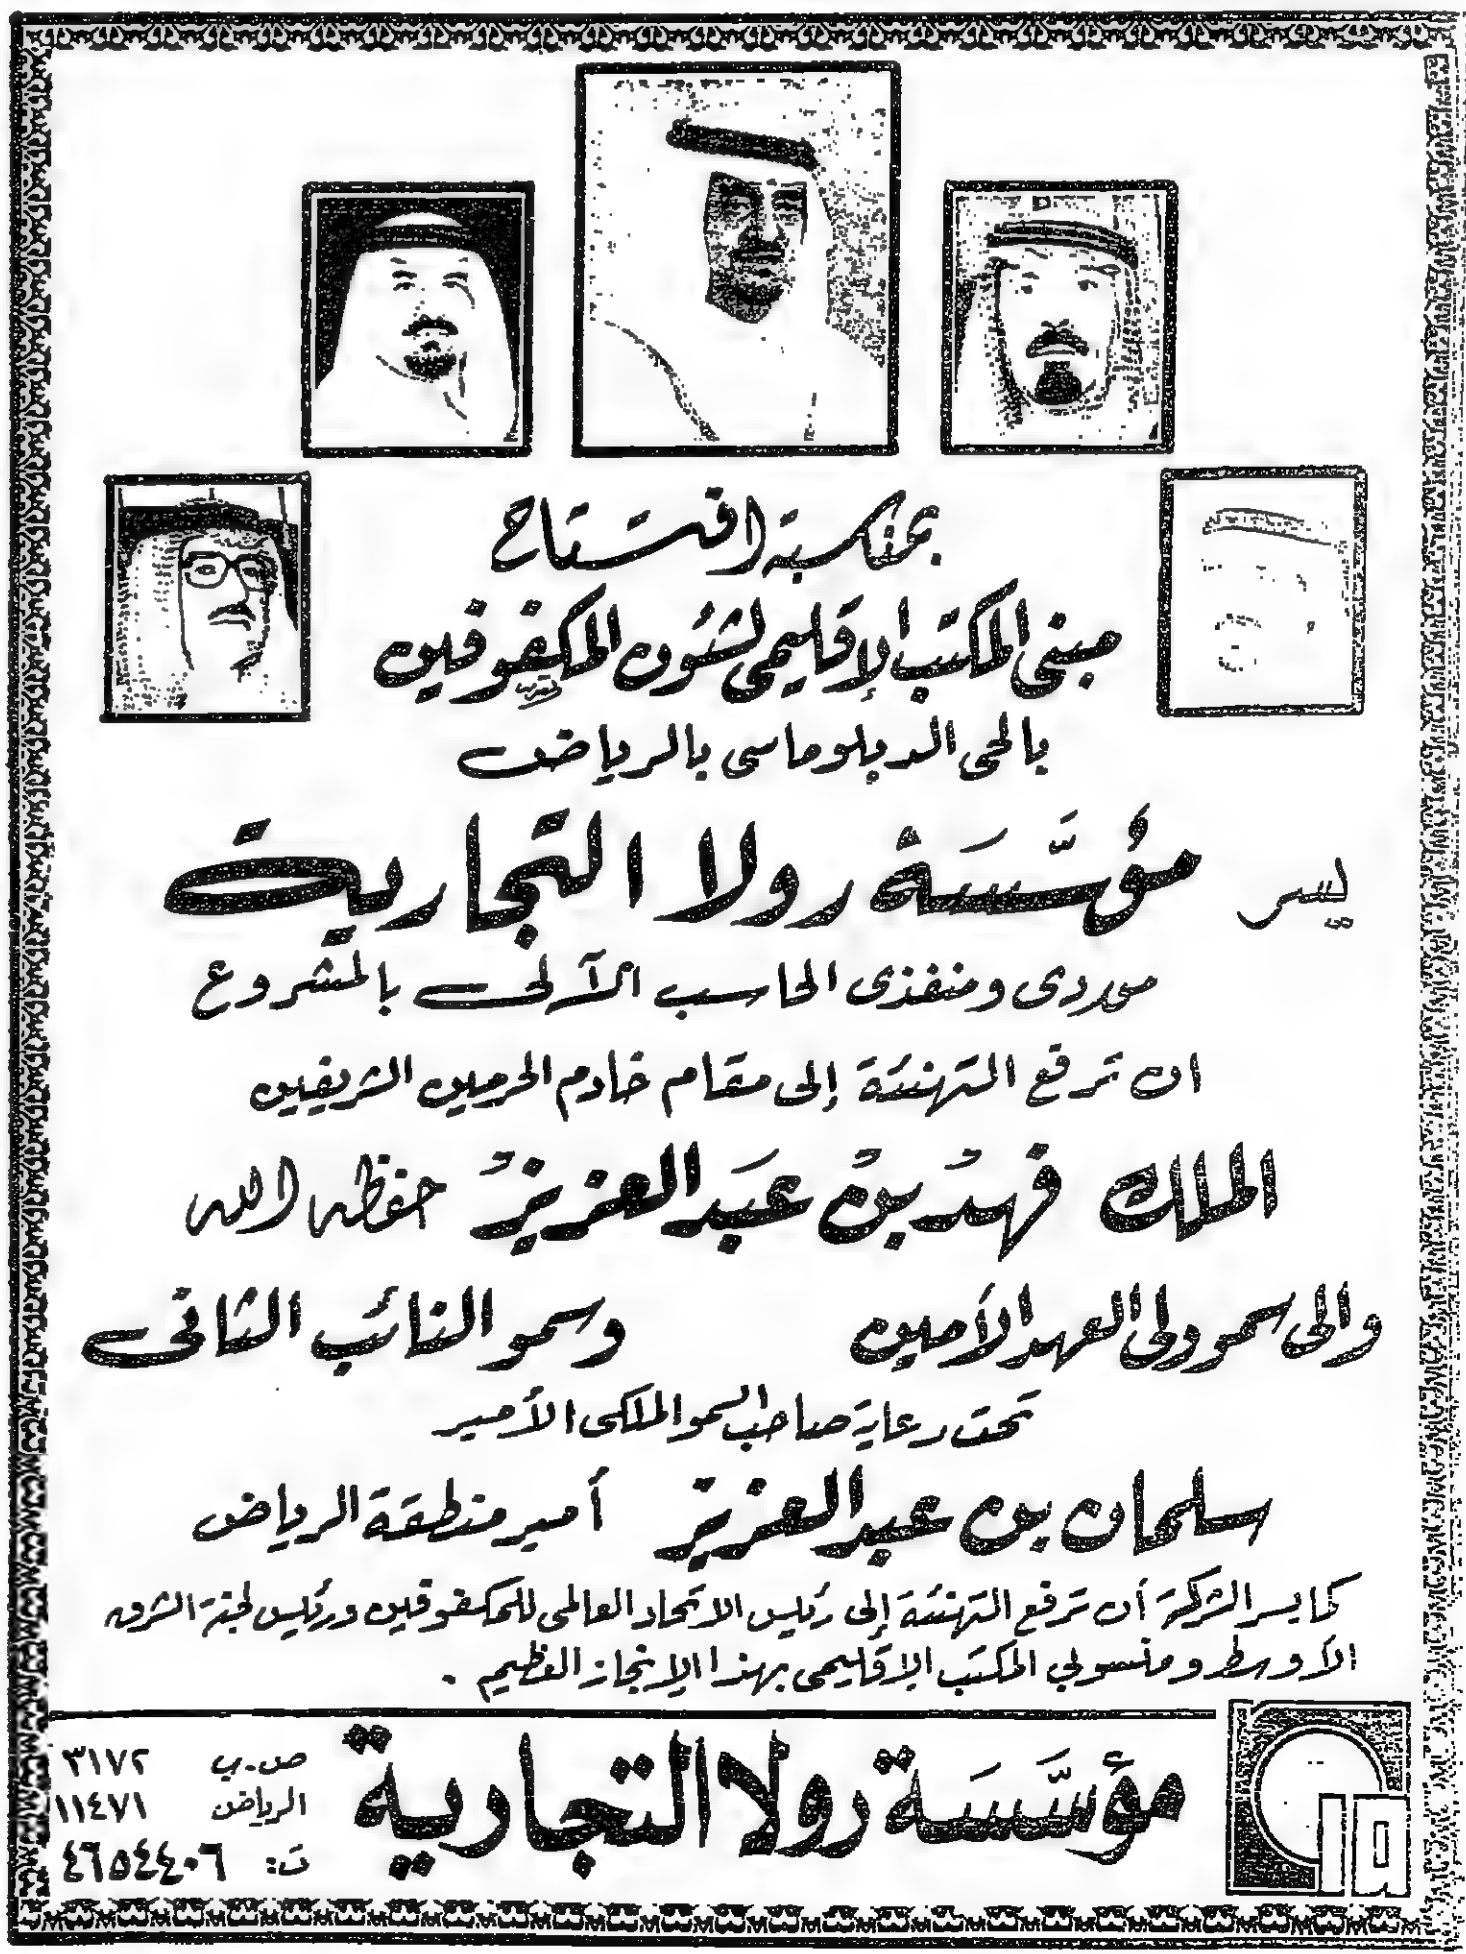 بمناسبة افتتاح
مبنى المكتب الإقليمى لشئون المكفوفين
بالحى الدبلوماسى بالرياض
يسر مؤسَّسَة رولا التجارية
موردى ومنفذى الحاسب الآلى بالمشروع
ان ترفع التهنئة إلى مقام خادم الحرمين الشريفين
الملك فهد بن عبد العزيز حفظه الله
والى سمو ولى العهد الأمين وسمو النائب الثانى
تحت رعاية صاحب السمو الملكى الأمير
سلمان بن عبد العزيز أمير منطقة الرياض
كما يسر الشركة أن ترفع التهنئة إلى رئيس الاتحاد العالمى للمكفوفين ورئيس لجنة الشرق
الأوسط ومنسوبي المكتب الإقليمى بهذا الإنجاز العظيم .
مؤسَّسَة رولا التجارية
ص.ب ٣١٧٢
الرياض ١١٤٧١
ت: ٤٦٥٤٤٠٦